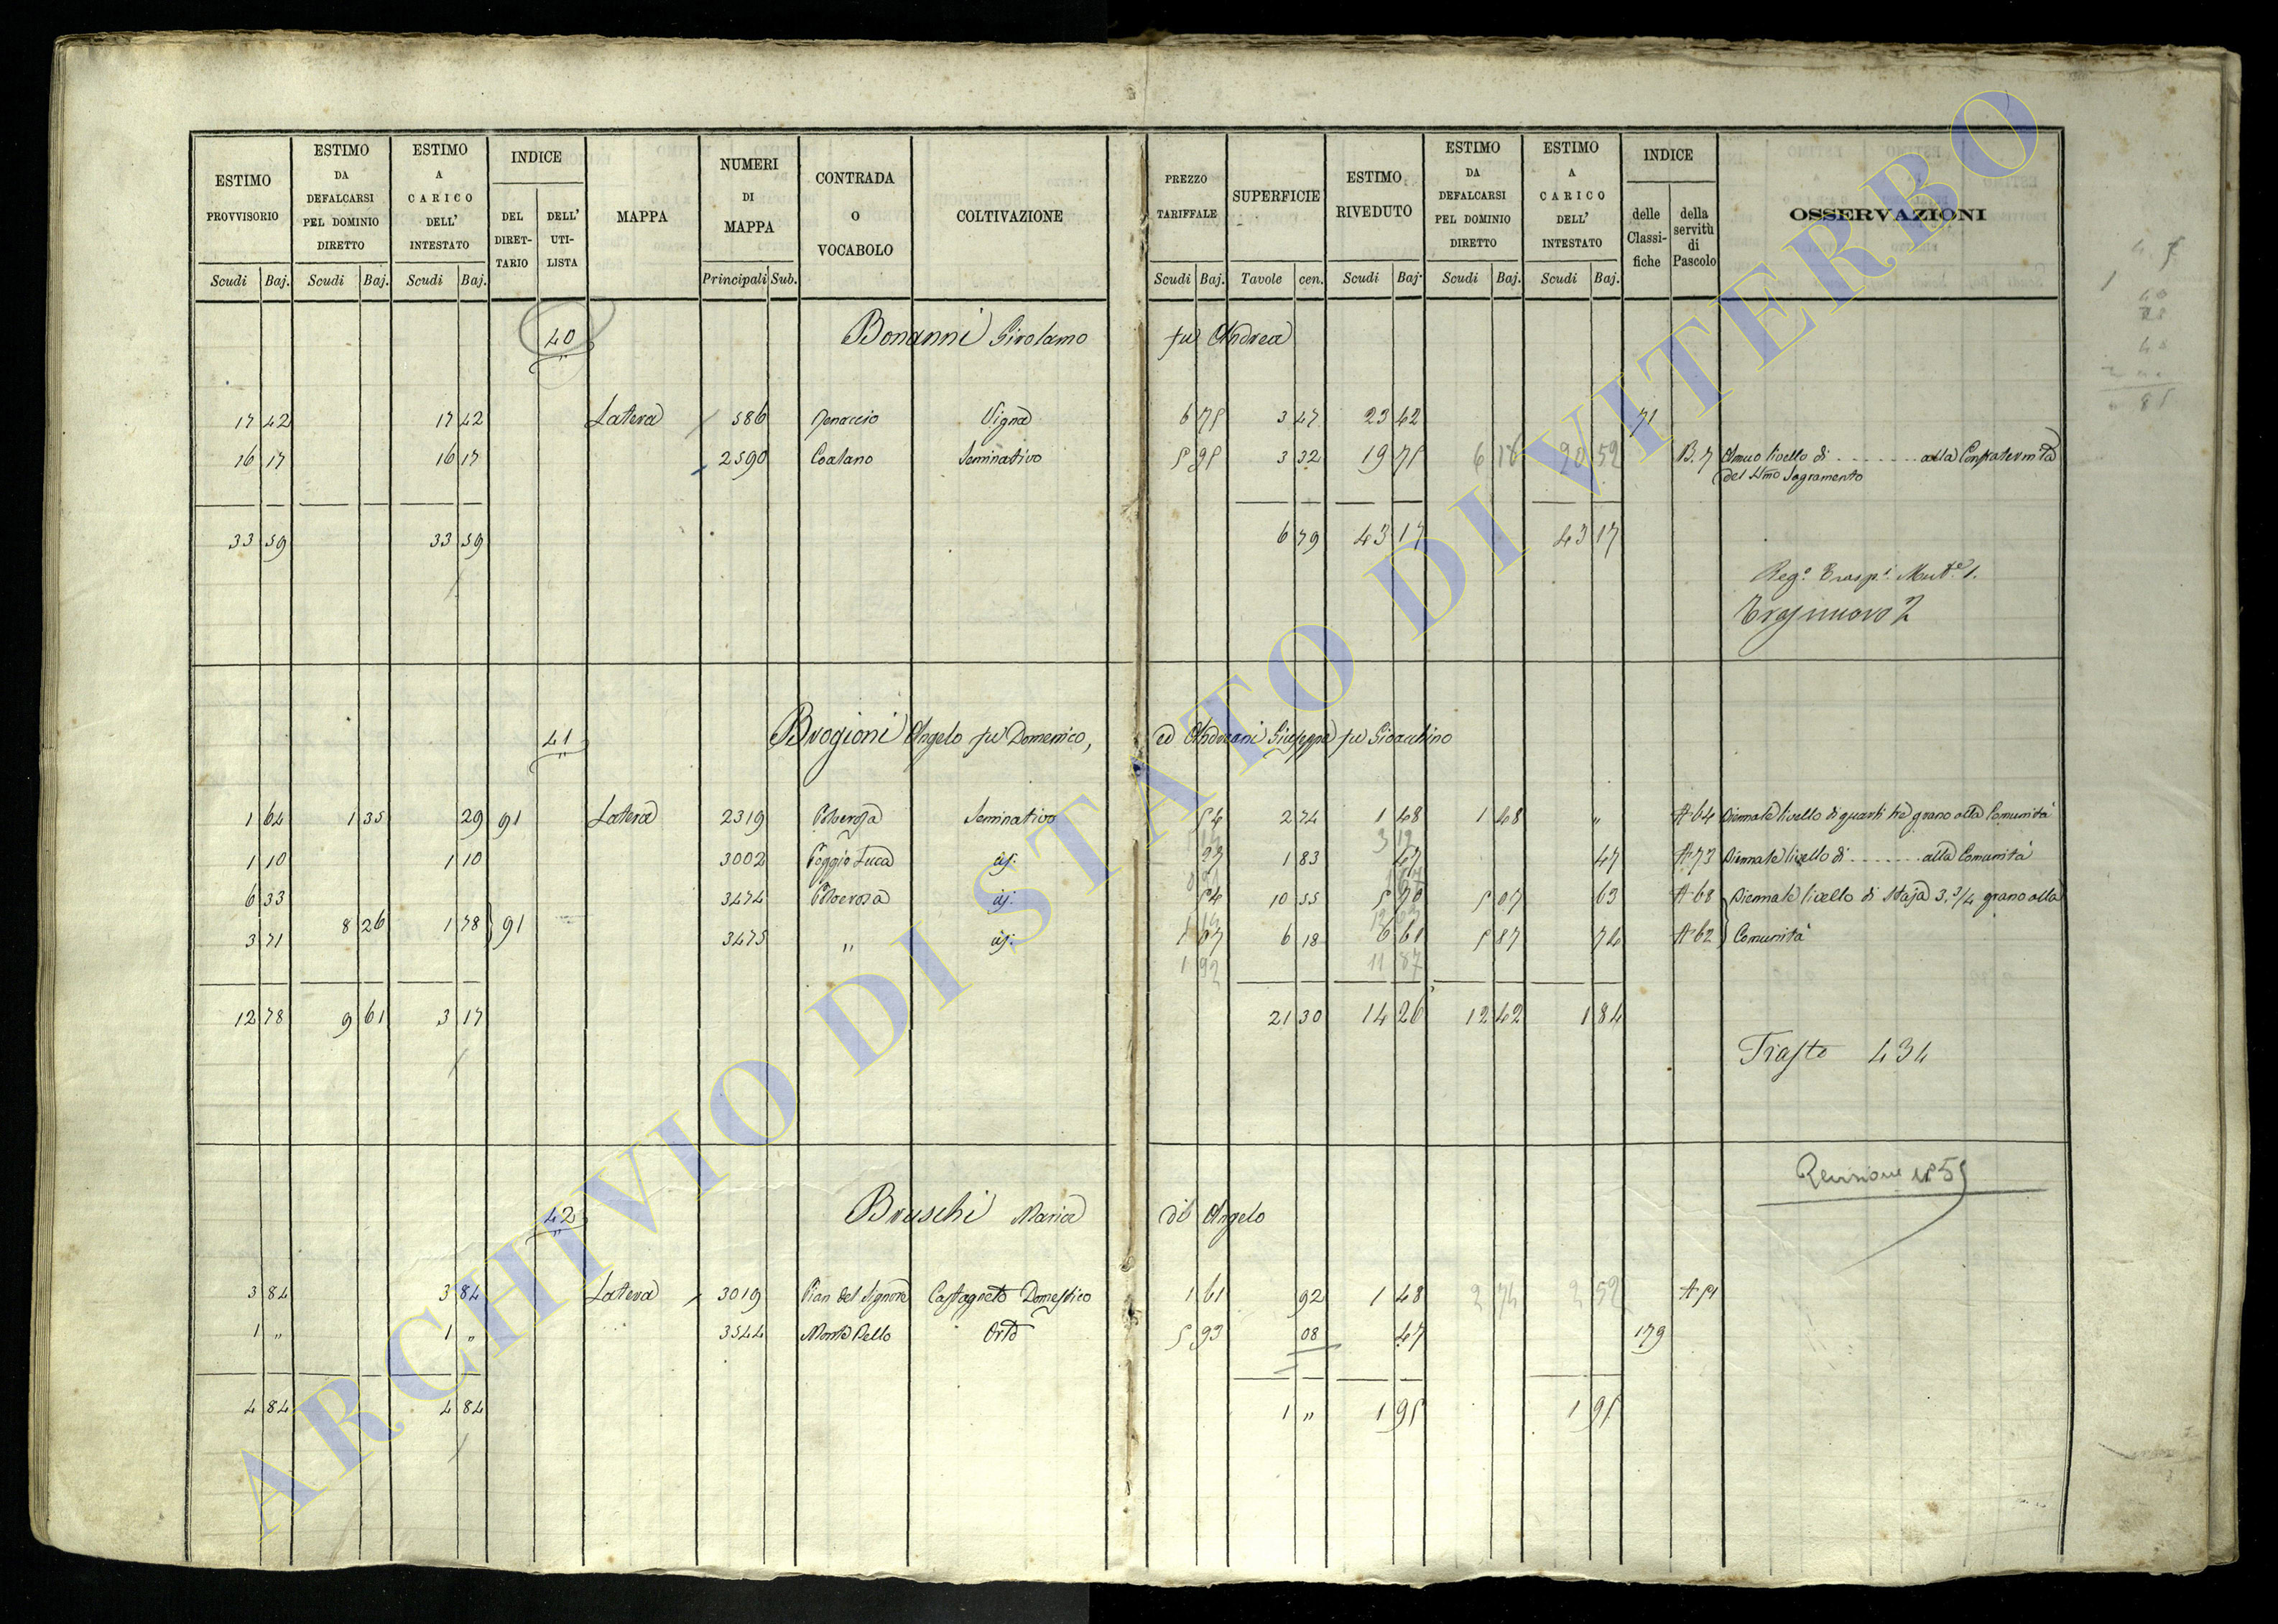 ESTIMO PROVVISORIO | ESTIMO DA DEFALCARSI PEL DOMINIO DIRETTO | ESTIMO A CARICO DELL' INTESTATO | INDICE | MAPPA | NUMERI DI MAPPA | CONTRADA O VOCABOLO | COLTIVAZIONE | PREZZO TARIFFALE | SUPERFICIE | ESTIMO RIVEDUTO | ESTIMO DA DEFALCARSI PEL DOMINIO DIRETTO | ESTIMO A CARICO DELL' INTESTATO | INDICE | OSSERVAZIONI
DEL DIRET-TARIO | DELL' UTI-LISTA | delle Classi-fiche | della servitù di Pascolo
Scudi | Baj. | Scudi | Baj. | Scudi | Baj. | Principali | Sub. | Scudi | Baj. | Tavole | cen. | Scudi | Baj. | Scudi | Baj. | Scudi | Baj.
40 Bonanni Girolamo fu Andrea
17 42 | 17 42 | Latera | 586 | Vigna | 6 75 | 3 47 | 23 42 | 71
16 17 | 16 17 | 2590 | Seminativo | 5 95 | 3 32 | 19 75 | 20 52 | B. 7 | Annuo livello di ........ alla Confraternita
del SSmo Sagramento
33 59 | 33 59 | 6 79 | 43 17 | 43 17
41 Brogioni Angelo fu Domenico, ed Andreani Giuseppe fu Gioacchino
1 64 | 1 35 | 29 | 91 | Latera | 2319 | Seminativo | 54 | 2 74 | 1 48 | 1 48 | " | A 64 | Biennale livello di quarti tre grano alla Comunità
1 10 | 1 10 | 3002 | Poggio Luca | id: | 1 83 | 47 | 47 | A 73 | Biennale livello di ....... alla Comunità
6 33 | 3474 | id: | 54 | 10 55 | 5 70 | 5 07 | 63 | A 68 | Biennale livello di Staja 3. 3/4 grano alla
3 71 | 8 26 | 1 78 | 91 | 3475 | " | id: | 1 07 | 6 18 | 6 61 | 5 87 | 74 | A 62 | Comunità
1 92 | 11 87
12 78 | 9 61 | 3 17 | 21 30 | 14 26 | 12 42 | 1 84
Trasto 434
Revisione 1855
42 Bruschi Maria di Angelo
3 84 | 3 84 | Latera | 3019 | Pian del Signore | Castagneto Domestico | 1 61 | 92 | 1 48 | 2 52 | A 51
1 " | 1 " | 3544 | Orto | 5 93 | 08 | 47 | 179
4 84 | 4 84 | 1 " | 1 95 | 1 95
ARCHIVIO DI STATO DI VITERBO